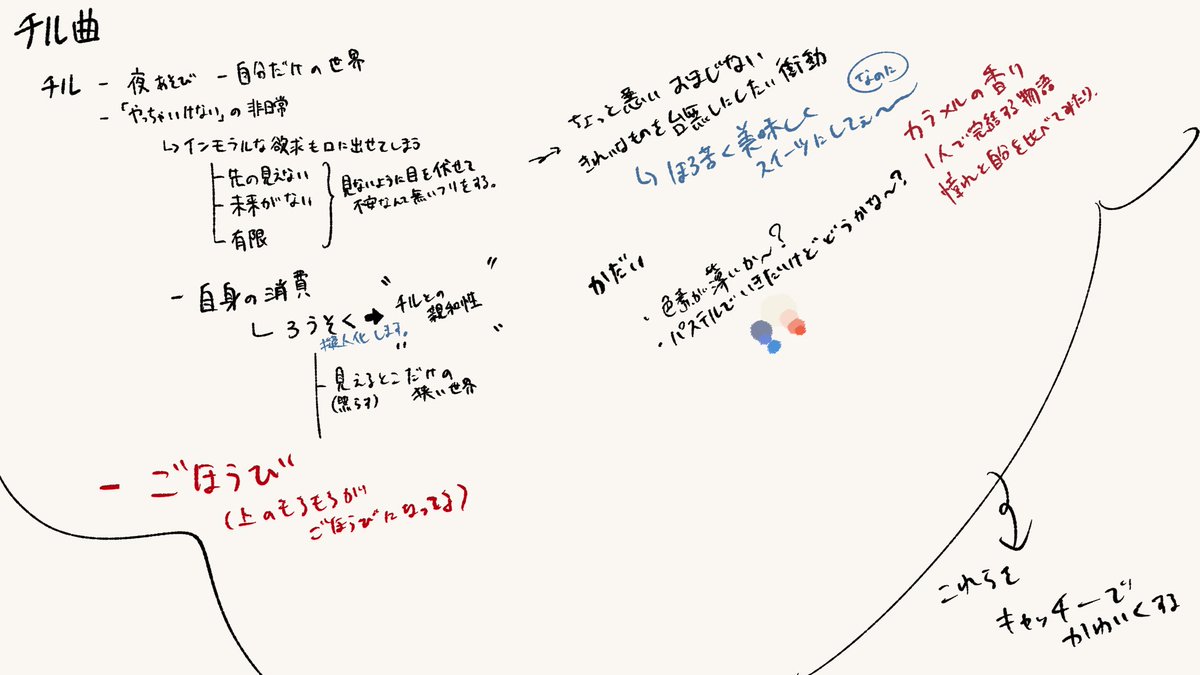 チル曲
チル - 夜あそび - 自分だけの世界
- 「やっちゃいけない」の非日常
↳ インモラルな欲求も口に出せてしまう
先の見えない
未来がない
有限
見ないように目を伏せて
不安なんて無いフリをする。
→ ちょっと悪いおまじない
きれいなものを台無しにしたい衝動
なのに
↳ ほろ苦く美味しく
スイーツにしてぇ〜
カラメルの香り
1人で完結する物語
憧れと自分を比べてみたり.
- 自身の消費
ろうそく → "チルとの
親和性"
擬人化します。
見えるとこだけの
(照らす) 狭い世界
かだい
・色素が薄いか〜?
・パステルでいきたいけどどうかな〜?
- ごほうび
(上のもろもろが
ごほうびになってるよ)
これらを
キャッチーで
かわいくする